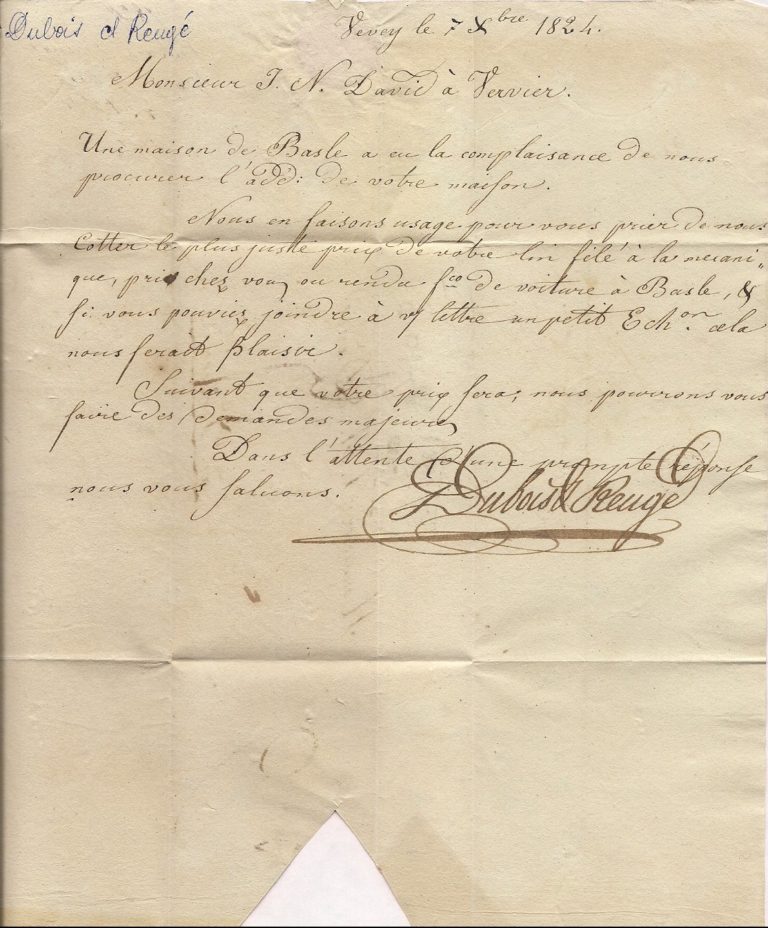 Dubois et Reugé
Vevey le 7 Xbre 1824.
Monsieur J. N. David à Vervier.
Une maison de Basle a eu la complaisance de nous
procurer l'add: de votre maison.
Nous en faisons usage pour vous prier de nous
Cotter le plus juste prix de votre lin filé à la mecani„
que, prix chez vous ou rendu fco de voiture à Basle, &
si vous pouviez joindre à v/ lettre un petit Echon. cela
nous ferait plaisir.
Suivant que votre prix sera; nous pourrons vous
faire des demandes majeures
Dans l'attente d'une prompte réponse
nous vous saluons.
Dubois & Reugé